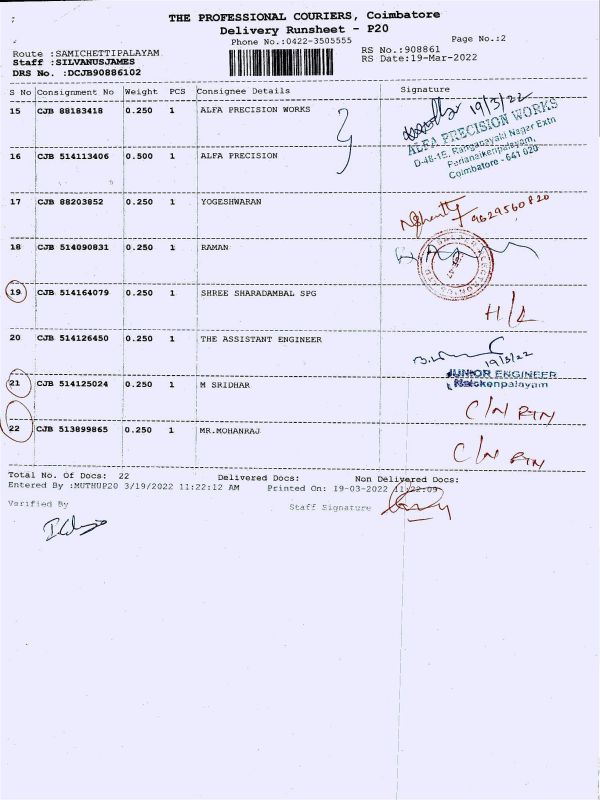 THE PROFESSIONAL COURIERS, Coimbatore
Delivery Runsheet - P20
Phone No.:0422-3505555 Page No.:2
Route :SAMICHETTIPALAYAM RS No.:908861
Staff :SILVANUSJAMES RS Date:19-Mar-2022
DRS No. :DCJB90886102
S No Consignment No Weight PCS Consignee Details Signature
15 CJB 88183418 0.250 1 ALFA PRECISION WORKS 19/3/22
ALFA PRECISION WORKS
D-48-1E, Ranganayaki Nagar Extn
Perianaikenpalayam,
Coimbatore - 641 020
16 CJB 514113406 0.500 1 ALFA PRECISION
17 CJB 88203852 0.250 1 YOGESHWARAN 9629560820
18 CJB 514090831 0.250 1 RAMAN
19 CJB 514164079 0.250 1 SHREE SHARADAMBAL SPG H/L
20 CJB 514126450 0.250 1 THE ASSISTANT ENGINEER 19/3/22
JUNIOR ENGINEER
Naickenpalayam
21 CJB 514125024 0.250 1 M SRIDHAR C/N RTN
22 CJB 513899865 0.250 1 MR.MOHANRAJ C/N RTN
Total No. Of Docs: 22 Delivered Docs: Non Delivered Docs:
Entered By :MUTHUP20 3/19/2022 11:22:12 AM Printed On: 19-03-2022 11:22:09
Varified By Staff Signature